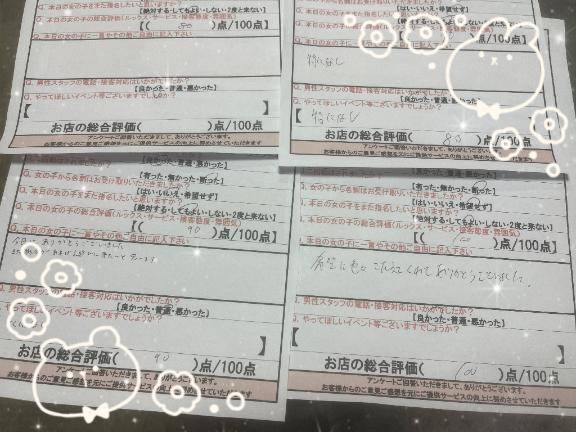 Q. 本日の女の子をまた指名したいと思いますか？
【絶対する・してもよい・しない・2度と来ない】
Q. 本日の女の子の総合評価(ルックス・サービス・接客態度・雰囲気)
【( 80 )点/100点
Q. 本日の女の子に一言やその他ご自由に記入下さい
Q. 男性スタッフの電話・接客対応はいかがでしたか？
【良かった・普通・悪かった】
Q. やってほしいイベント等ございますでしょうか？
【
お店の総合評価( )点/100点
アンケートご回答いただきまして、ありがとうございます。
お客様からのご意見ご感想を元にご提供サービスの向上に努めさせていただきます
【絶対する・してもよい・しない・2度と来ない】
)点/100点
特になし
【良かった・普通・悪かった】
Q. やってほしいイベント等ございますでしょうか？
【 特になし
お店の総合評価( 80 )点/100点
【良かった・普通・悪かった】
Q. 女の子から名刺はお受け取りいただきましたか？
【有った・無かった・断った】
Q. 本日の女の子をまた指名したいと思いますか？
【はい・いいえ・希望せず】
【絶対する・してもよい・しない・2度と来ない】
Q. 本日の女の子の総合評価(ルックス・サービス・接客態度・雰囲気)
【( 90 )点/100点
Q. 本日の女の子に一言やその他ご自由に記入下さい
ありがとうございました
Q. 男性スタッフの電話・接客対応はいかがでしたか？
【良かった・普通・悪かった】
やってほしいイベント等ございますでしょうか？
】
お店の総合評価( 90 )点/100点
アンケートご回答いただきまして、ありがとうございます。
お客様からのご意見ご感想を元にご提供サービスの向上に努めさせていただきます
【良かった・普通・悪かった】
女の子から名刺はお受け取りいただきましたか？
【有った・無かった・断った】
本日の女の子をまた指名したいと思いますか？
【はい・いいえ・希望せず】
【絶対する・してもよい・しない・2度と来ない】
本日の女の子の総合評価(ルックス・サービス・接客態度・雰囲気)
【( 100 )点/100点
本日の女の子に一言やその他ご自由に記入下さい
ありがとうございました。
男性スタッフの電話・接客対応はいかがでしたか？
【良かった・普通・悪かった】
やってほしいイベント等ございますでしょうか？
【 】
お店の総合評価( 100 )点/100点
アンケートご回答いただきまして、ありがとうございます。
お客様からのご意見ご感想を元にご提供サービスの向上に努めさせていただきます